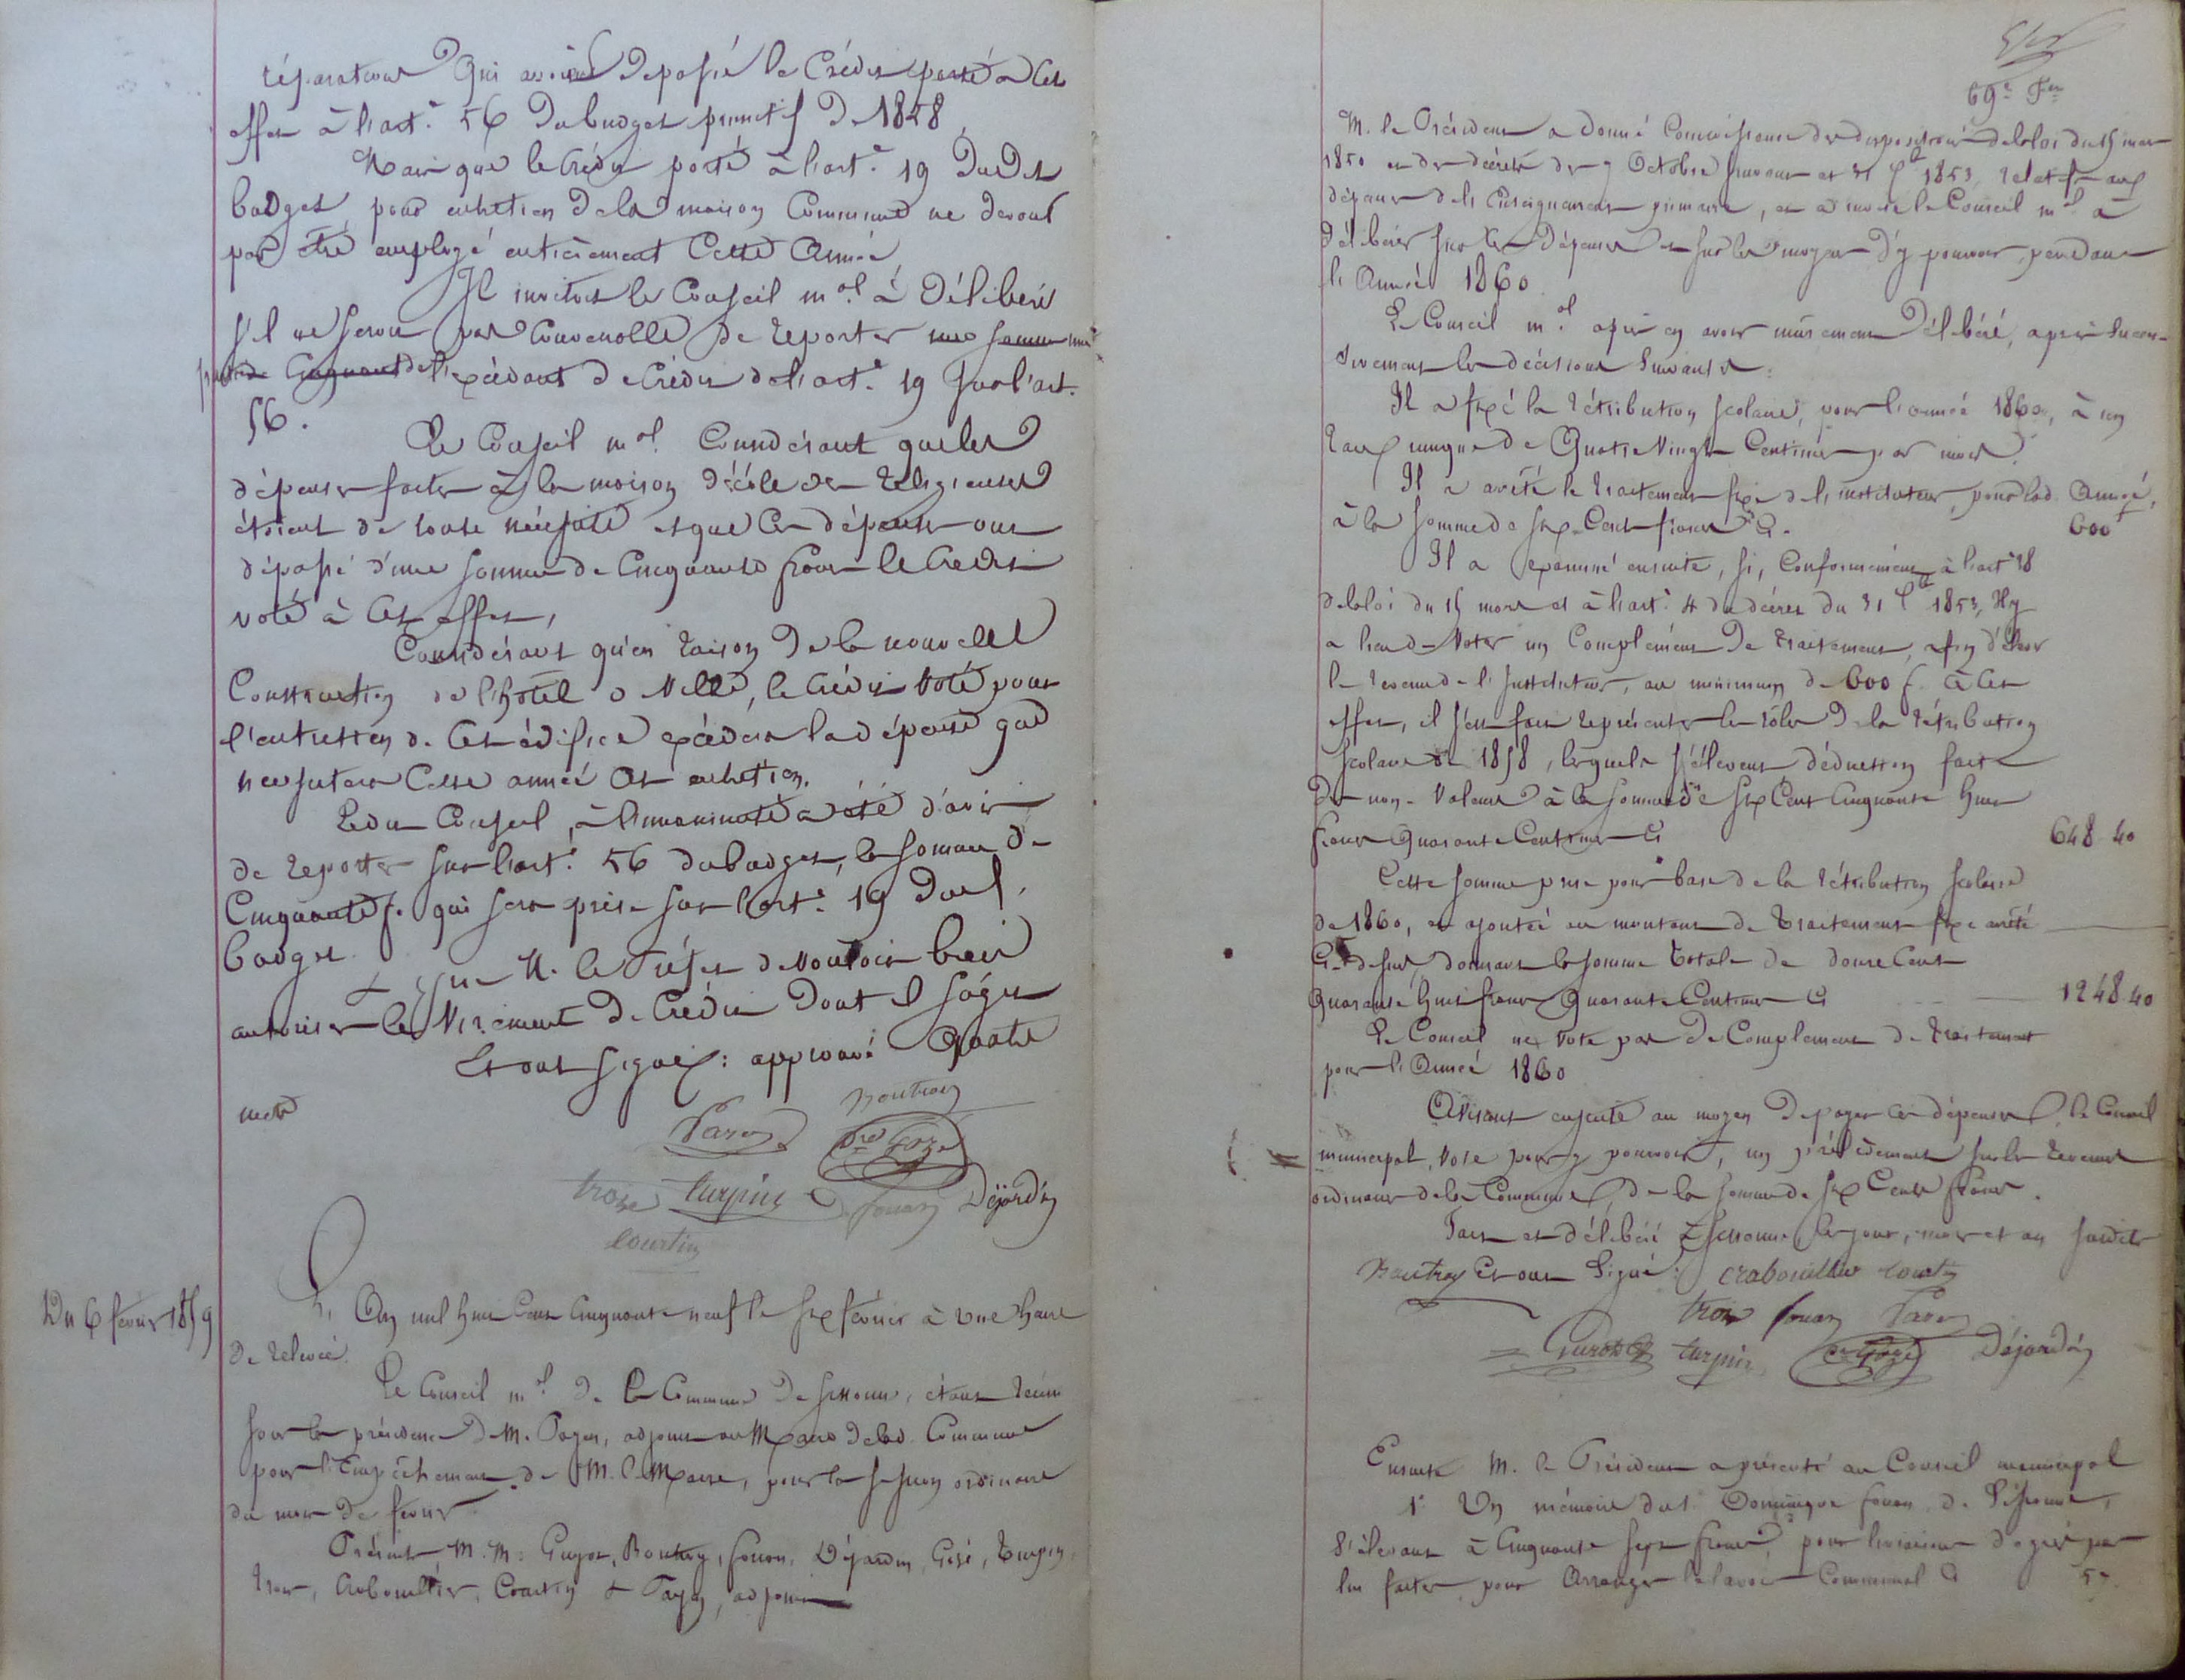 réparations qui avaient dépassé le Crédit porté à cet
effet à l'art.e 56 du budget primitif de 1858
Mais que le Crédit porté à l'art.e 19 dudit
budget pour entretien de la maison Commune ne devant
pas être employé entièrement cette Année
Il invitait le Conseil m.al à Délibérer
s'il ne serait pas convenable de reporter une somme une
partie de Cinquante de l'excédant de Crédit de l'art.e 19 sur l'art.
56.
Le Conseil m.al Considérant que les
dépenses faites à la maison d'école des Religieuses
étaient de toute nécessité et que ces dépenses ont
dépassé d'une somme de Cinquante francs le Crédit
voté à cet effet,
Considérant qu'en raison de la nouvelle
Construction de l'hôtel de Ville, le Crédit voté pour
l'entretien de cet édifice excédera la dépense que
nécessitera cette année cet entretien.
Ledit Conseil, à l'unanimité a été d'avis
de reporter sur l'art.e 56 du budget, la somme de
Cinquante f. qui sera prise sur l'art.e 19 dud.
budget.
M. le Préfet de vouloir bien
autoriser le Virement de Crédit dont il s'agit
Et ont signé: approuvé quatre
mots
Boutroy
Payen Gozé
troze turpin fouan Déjardin
Courtin
Du 6 février 1859
L'An mil huit Cent Cinquante neuf le six février à une heure
de relevée.
Le Conseil m.al de la Commune de Sissonne, étant réuni
sous la présidence de M. Payen, adjoint au Maire de lad. Commune
pour l'empêchement de M. le Maire, pour la session ordinaire
du mois de février.
Présents, M.M. Guyot, Boutroy, fouan, Déjardin, Gozé, Turpin,
Craboullier, Courtin & Payen, adjoint
69.e
M. le Président a donné Connaissance des dispositions de la loi du 15 mars
1850 et des décrets des 7 Octobre suivant et 31 X.bre 1853, relatifs aux
dépenses de l'Enseignement primaire, et a invité le Conseil m.al à
délibérer sur les dépenses et sur les moyens d'y pourvoir, pendant
l'Année 1860
Le Conseil m.al après en avoir mûrement délibéré, a pris succes-
sivement les décisions suivantes:
Il a fixé la rétribution scolaire, pour l'année 1860, à un
taux unique de Quatre Vingts Centimes par mois.
Il a arrêté le traitement fixe de l'instituteur, pour lad. Année,
à la somme de six Cents francs Ci. 600f
Il a examiné ensuite, si, Conformément à l'art. 38
de la loi du 15 mars et à l'art.e 4 du décret du 31 X.bre 1853, il y
a lieu de Voter un Complément de traitement, afin d'élever
le revenu de l'Instituteur, au minimum de 600 f. à cet
effet, il s'est fait représenter les rôles de la rétribution
scolaire de 1858, lesquels s'élèvent déduction faite
des non-Valeurs à la somme de six Cent Cinquante huit
francs Quarante Centimes Ci 648 40
Cette somme prise pour base de la rétribution scolaire
de 1860, et ajoutée au montant de traitement fixe arrêté
Ci-dessus, donnant la somme totale de douze Cent
Quarante huit francs Quarante Centimes Ci 1248 40
Le Conseil ne Vote pas de Complément de traitement
pour l'Année 1860
Avisant ensuite au moyen de payer ces dépenses, le Conseil
municipal, vote pour y pourvoir, un prélèvement sur les revenus
ordinaires de la Commune, de la somme de six Cents francs.
Fait et délibéré à Sissonne les jour, mois et an susdits
Boutroy Et ont Signé: craboullier Courtin
troze fouan Payen
Guyot turpin Gozé Déjardin
Ensuite M. le Président a présenté au Conseil municipal
1° Un mémoire du s. Dominique fouan de Sissonne,
S'élevant à Cinquante sept francs, pour livraison
lui faites pour Arranger le lavoir Communal Ci 57